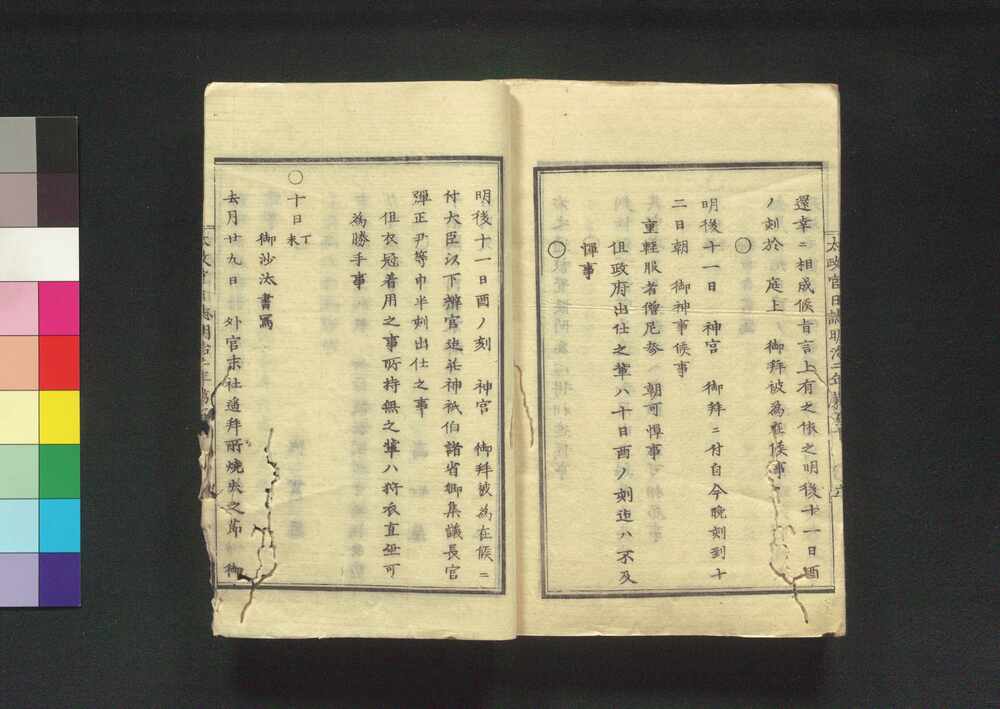 還幸ニ相成候旨言上有之依之明後十一日酉
ノ刻於 庭上 御拜被為在候事
〇
明後十一日 神宮 御拜ニ付自今晩刻到十
二日朝 御神事候事
重輕服者僧尼參 朝可憚事
但政府出仕之輩ハ十日酉ノ刻迠ハ不及
憚事
〇
明後十一日酉ノ刻 神宮 御拜被為在候ニ
付大臣以下辨官迠並神祇伯諸省卿集議長官
彈正尹等申半刻出仕之事
但衣冠着用之事所持無之輩ハ狩衣直垂可
為勝手事
〇十日丁未
御沙汰書寫
去月廿九日 外宮末社遙拜所燒失之節 御
太政官日誌明治二年